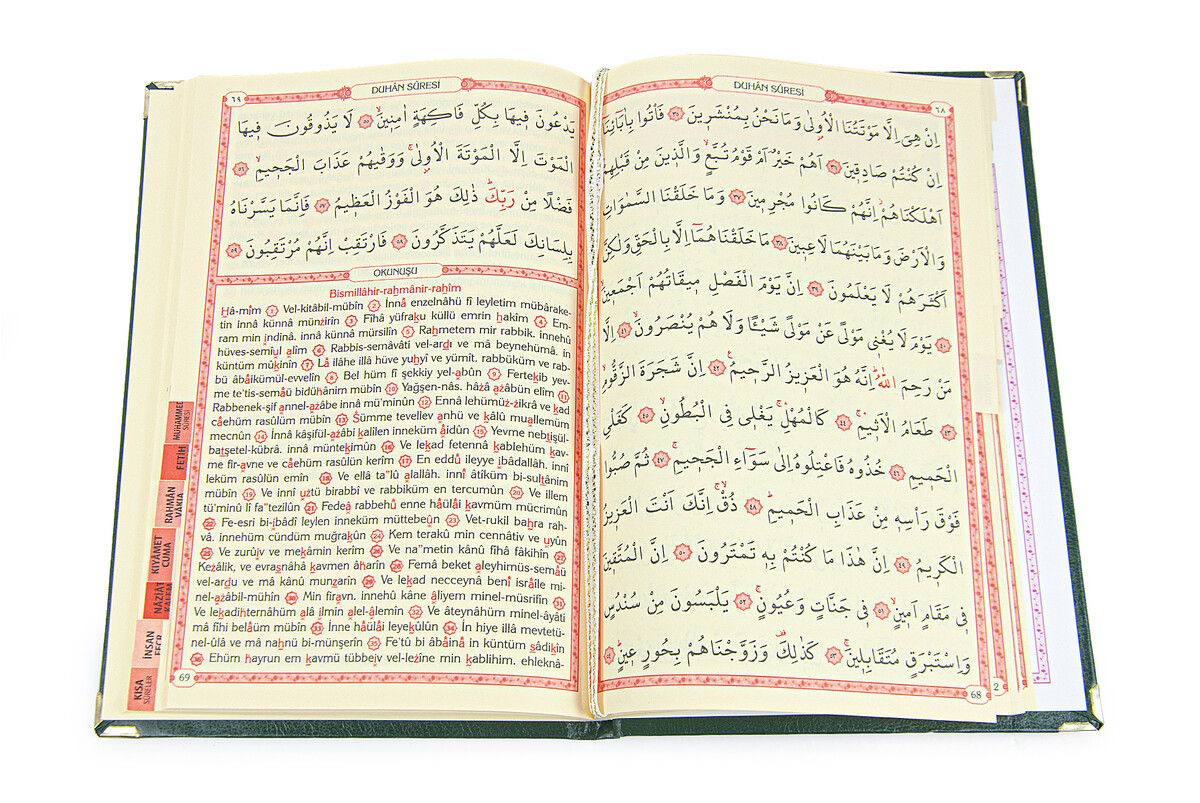 DUHÂN SÛRESİ
٦٨
اِنْ هِيَ اِلَّا مَوْتَتُنَا الْاُو۫لٰى وَمَا نَحْنُ بِمُنْشَر۪ينَ ٣٥ فَأْتُوا بِاٰبَٓائِنَٓا
اِنْ كُنْتُمْ صَادِق۪ينَ ٣٦ اَهُمْ خَيْرٌ اَمْ قَوْمُ تُبَّعٍۙ وَالَّذ۪ينَ مِنْ قَبْلِهِمْ
اَهْلَكْنَاهُمْۘ اِنَّهُمْ كَانُوا مُجْرِم۪ينَ ٣٧ وَمَا خَلَقْنَا السَّمٰوَاتِ
وَالْاَرْضَ وَمَا بَيْنَهُمَا لَاعِب۪ينَ ٣٨ مَا خَلَقْنَاهُمَٓا اِلَّا بِالْحَقِّ وَلٰكِنَّ
اَكْثَرَهُمْ لَا يَعْلَمُونَ ٣٩ اِنَّ يَوْمَ الْفَصْلِ م۪يقَاتُهُمْ اَجْمَع۪ينَۙ
٤٠ يَوْمَ لَا يُغْن۪ي مَوْلًى عَنْ مَوْلًى شَيْـًٔا وَلَا هُمْ يُنْصَرُونَۙ ٤١ اِلَّا
مَنْ رَحِمَ اللّٰهُۜ اِنَّهُ هُوَ الْعَز۪يزُ الرَّح۪يمُ۟ ٤٢ اِنَّ شَجَرَةَ الزَّقُّومِۙ
٤٣ طَعَامُ الْاَث۪يمِۚ ٤٤ كَالْمُهْلِۚ يَغْل۪ي فِي الْبُطُونِۙ ٤٥ كَغَلْيِ
الْحَم۪يمِ ٤٦ خُذُوهُ فَاعْتِلُوهُ اِلٰى سَوَٓاءِ الْجَح۪يمِۗ ٤٧ ثُمَّ صُبُّوا
فَوْقَ رَأْسِه۪ مِنْ عَذَابِ الْحَم۪يمِۜ ٤٨ ذُقْۙ اِنَّكَ اَنْتَ الْعَز۪يزُ
الْكَر۪يمُ ٤٩ اِنَّ هٰذَا مَا كُنْتُمْ بِه۪ تَمْتَرُونَ ٥٠ اِنَّ الْمُتَّق۪ينَ
ف۪ي مَقَامٍ اَم۪ينٍۙ ٥١ ف۪ي جَنَّاتٍ وَعُيُونٍۚ ٥٢ يَلْبَسُونَ مِنْ سُنْدُسٍ
وَاِسْتَبْرَقٍ مُتَقَابِل۪ينَۚ ٥٣ كَذٰلِكَ۠ وَزَوَّجْنَاهُمْ بِحُورٍ ع۪ينٍۜ ٥٤
68
2
٦٩
DUHÂN SÛRESİ
يَدْعُونَ ف۪يهَا بِكُلِّ فَاكِهَةٍ اٰمِن۪ينَۙ ٥٥ لَا يَذُوقُونَ ف۪يهَا
الْمَوْتَ اِلَّا الْمَوْتَةَ الْاُو۫لٰىۚ وَوَقٰيهُمْ عَذَابَ الْجَح۪يمِۙ ٥٦
فَضْلًا مِنْ رَبِّكَۜ ذٰلِكَ هُوَ الْفَوْزُ الْعَظ۪يمُ ٥٧ فَاِنَّمَا يَسَّرْنَاهُ
بِلِسَانِكَ لَعَلَّهُمْ يَتَذَكَّرُونَ ٥٨ فَارْتَقِبْ اِنَّهُمْ مُرْتَقِبُونَ ٥٩
OKUNUŞU
Bismillâhir-rahmânir-rahîm
Hâ-mîm 1 Vel-kitâbil-mübîn 2 İnnâ enzelnâhü fî leyletim mübârake-
tin innâ künnâ münzirîn 3 Fîhâ yüfraku küllü emrin hakîm 4 Em-
ram min ındinâ. innâ künnâ mürsilîn 5 Rahmetem mir rabbik. innehû
hüves-semîul alîm 6 Rabbis-semâvâti vel-ardı ve mâ beynehümâ. in
küntüm mûkınîn 7 Lâ ilâhe illâ hüve yuhyî ve yümît. rabbüküm ve rab-
bü âbâikümül-evvelîn 8 Bel hüm fî şekkiy yel-abûn 9 Fertekıb yev-
me te'tis-semâü bidühânim mübîn 10 Yağşen-nâs. hâzâ azâbün elîm 11
Rabbenek-şif annel-azâbe innâ mü'minûn 12 Ennâ lehümüz-zikrâ ve kad
câehüm rasûlüm mübîn 13 Sümme tevellev anhü ve kâlû muallemüm
mecnûn 14 İnnâ kâşifül-azâbi kalîlen inneküm âidûn 15 Yevme nebtışül-
batşetel-kübrâ. innâ müntekımûn 16 Ve lekad fetennâ kablehüm kav-
me fir-avne ve câehüm rasûlün kerîm 17 En eddû ileyye ıbâdallâh. innî
leküm rasûlün emîn 18 Ve ellâ ta"lû alallâh. innî âtîküm bi-sultânim
mübîn 19 Ve innî uztü birabbî ve rabbiküm en tercumûn 20 Ve illem
tü'minû lî fa"tezilûn 21 Fedeâ rabbehû enne hâülâi kavmüm mücrimûn
22 Fe-esri bi-ıbâdî leylen inneküm müttebeûn 23 Vet-rukil bahra rah-
vâ. innehüm cündüm muğrakûn 24 Kem terakû min cennâtiv ve uyûn
25 Ve zurûıv ve mekâmin kerîm 26 Ve na"metin kânû fîhâ fâkihîn 27
Kezâlik, ve evrasnâhâ kavmen âharîn 28 Femâ beket aleyhimüs-semâü
vel-ardu ve mâ kânû munzarîn 29 Ve lekad necceynâ benî isrâîle mi-
nel-azâbil-mühîn 30 Min firavn. innehû kâne âliyem minel-müsrifîn 31
Ve lekadihternâhüm alâ ılmin alel-âlemîn 32 Ve âteynâhüm minel-âyâti
mâ fîhi belâüm mübîn 33 İnne hâülâi leyekûlûn 34 İn hiye illâ mevtetü-
nel-ûlâ ve mâ nahnü bi-münşerîn 35 Fe'tû bi âbâinâ in küntüm sâdikîn
36 Ehüm hayrun em kavmü tübbeıv vel-lezîne min kablihim. ehleknâ-
69
MUHAMMED SÛRESİ
FETİH
RAHMÂN
VÂKIA
KIYAMET
CUMA
NÂZİAT
İNSAN
FECR
KISA
SÛRELER